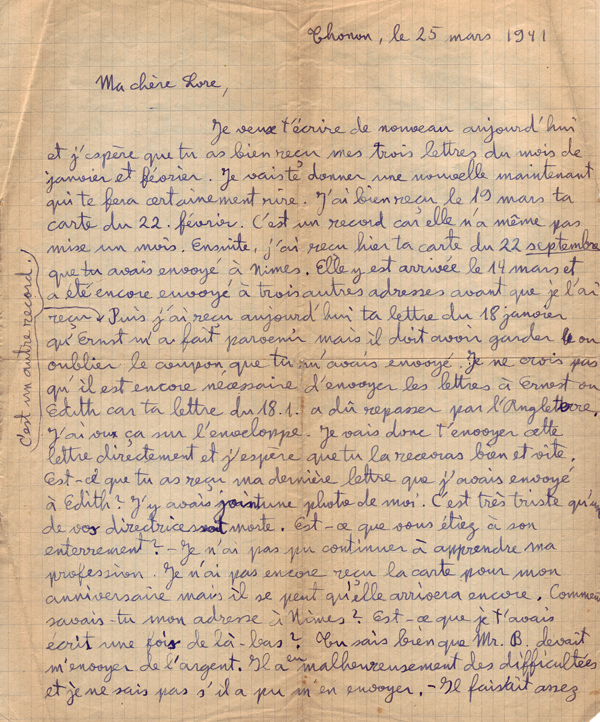 Thonon, le 25 mars 1941
Ma chère Lore,
Je veux t'écrire de nouveau aujourd'hui
et j'espère que tu as bien reçu mes trois lettres du mois de
janvier et février. Je vais te donner une nouvelle maintenant
qui te fera certainement rire. J'ai bien reçu le 19 mars ta
carte du 22. février. C'est un record car elle n'a même pas
mise un mois. Ensuite, j'ai reçu hier ta carte du 22 septembre
que tu avais envoyé à Nimes. Elle y est arrivée le 14 mars et
a été encore envoyé à trois autres adresses avant que je l'ai
reçu. Puis j'ai reçu aujourd'hui ta lettre du 18 janvier
qu'Ernst m'a fait parvenir mais il doit avoir garder ou
oublier le coupon que tu m'avais envoyé. Je ne crois pas
qu'il est encore nécessaire d'envoyer les lettres à Ernest ou
Edith car ta lettre du 18.1. a dû repasser par l'Angleterre.
J'ai vu ça sur l'enveloppe. Je vais donc t'envoyer cette
lettre directement et j'espère que tu la recevras bien et vite.
Est-ce que tu as reçu ma dernière lettre que j'avais envoyé
à Edith? J'y avais joint une photo de moi. C'est très triste qu'une
de vos directrices soit morte. Est-ce que vous étiez à son
enterrement? - Je n'ai pas pu continuer à apprendre ma
profession. Je n'ai pas encore reçu la carte pour mon
anniversaire mais il se peut qu'elle arrivera encore. Comment
savais-tu mon adresse à Nîmes? Est-ce que je t'avais
écrit une fois de là-bas? Tu sais bien que Mr. B. devait
m'envoyer de l'argent. Il a eu malheureusement des difficultées
et je ne sais pas s'il a pu m'en envoyer. - Il faisait assez
C'est un autre record.